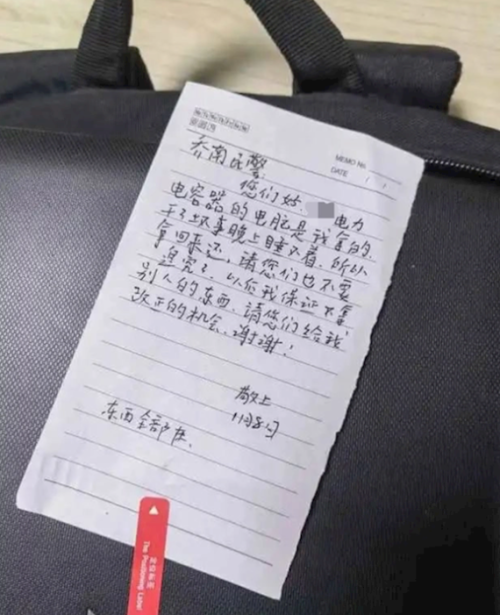 MEMO No.
DATE ( )
乔南民警
您们好. 电力
电容器的电脑是我拿的.
干了坏事晚上睡不着. 所以
拿回来还, 请您们也不要
追究了. 以后我保证不拿
别人的东西. 请您们给我
改正的机会. 谢谢!
敬上
11月8日
东西全部在.
The Positioning Label